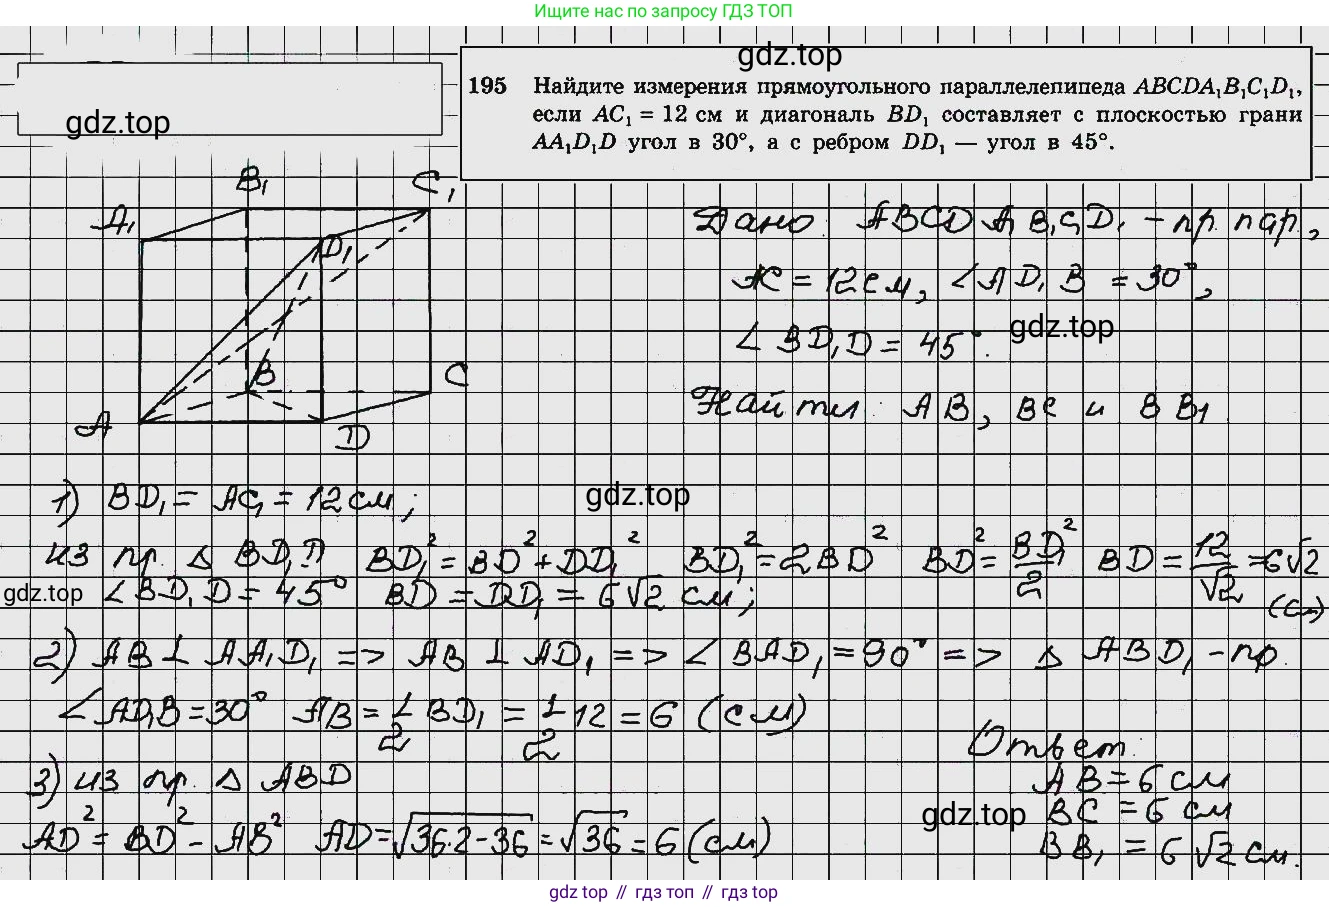 Ищите нас по запросу ГДЗ ТОП
gdz.top
gdz.top
195 Найдите измерения прямоугольного параллелепипеда ABCDA₁B₁C₁D₁,
если AC₁ = 12 см и диагональ BD₁ составляет с плоскостью грани
AA₁D₁D угол в 30°, а с ребром DD₁ — угол в 45°.
B₁ C₁
A₁ D₁
B C
A D
Дано: ABCDA₁B₁C₁D₁ - пр. пар.,
AC = 12 см, ∠AD₁B = 30°,
∠BD₁D = 45°.
gdz.top
Найти: AB, BC и BB₁
1) BD₁ = AC₁ = 12 см;
gdz.top
из пр. Δ BD₁D BD₁² = BD² + DD₁² BD₁² = 2BD² BD² = BD₁²/2 BD = 12/√2 = 6√2 (см)
gdz.top
∠BD₁D = 45° BD = DD₁ = 6√2 см;
2) AB ⊥ AA₁D₁ => AB ⊥ AD₁ => ∠BAD₁ = 90° => Δ ABD₁ - пр.
∠AD₁B = 30° AB = 1/2 BD₁ = 1/2 12 = 6 (см)
3) из пр. Δ ABD
AD² = BD² - AB² AD = √36·2-36 = √36 = 6 (см)
Ответ:
AB = 6 см
BC = 6 см
BB₁ = 6√2 см.
gdz.top
gdz top // гдз топ // gdz top